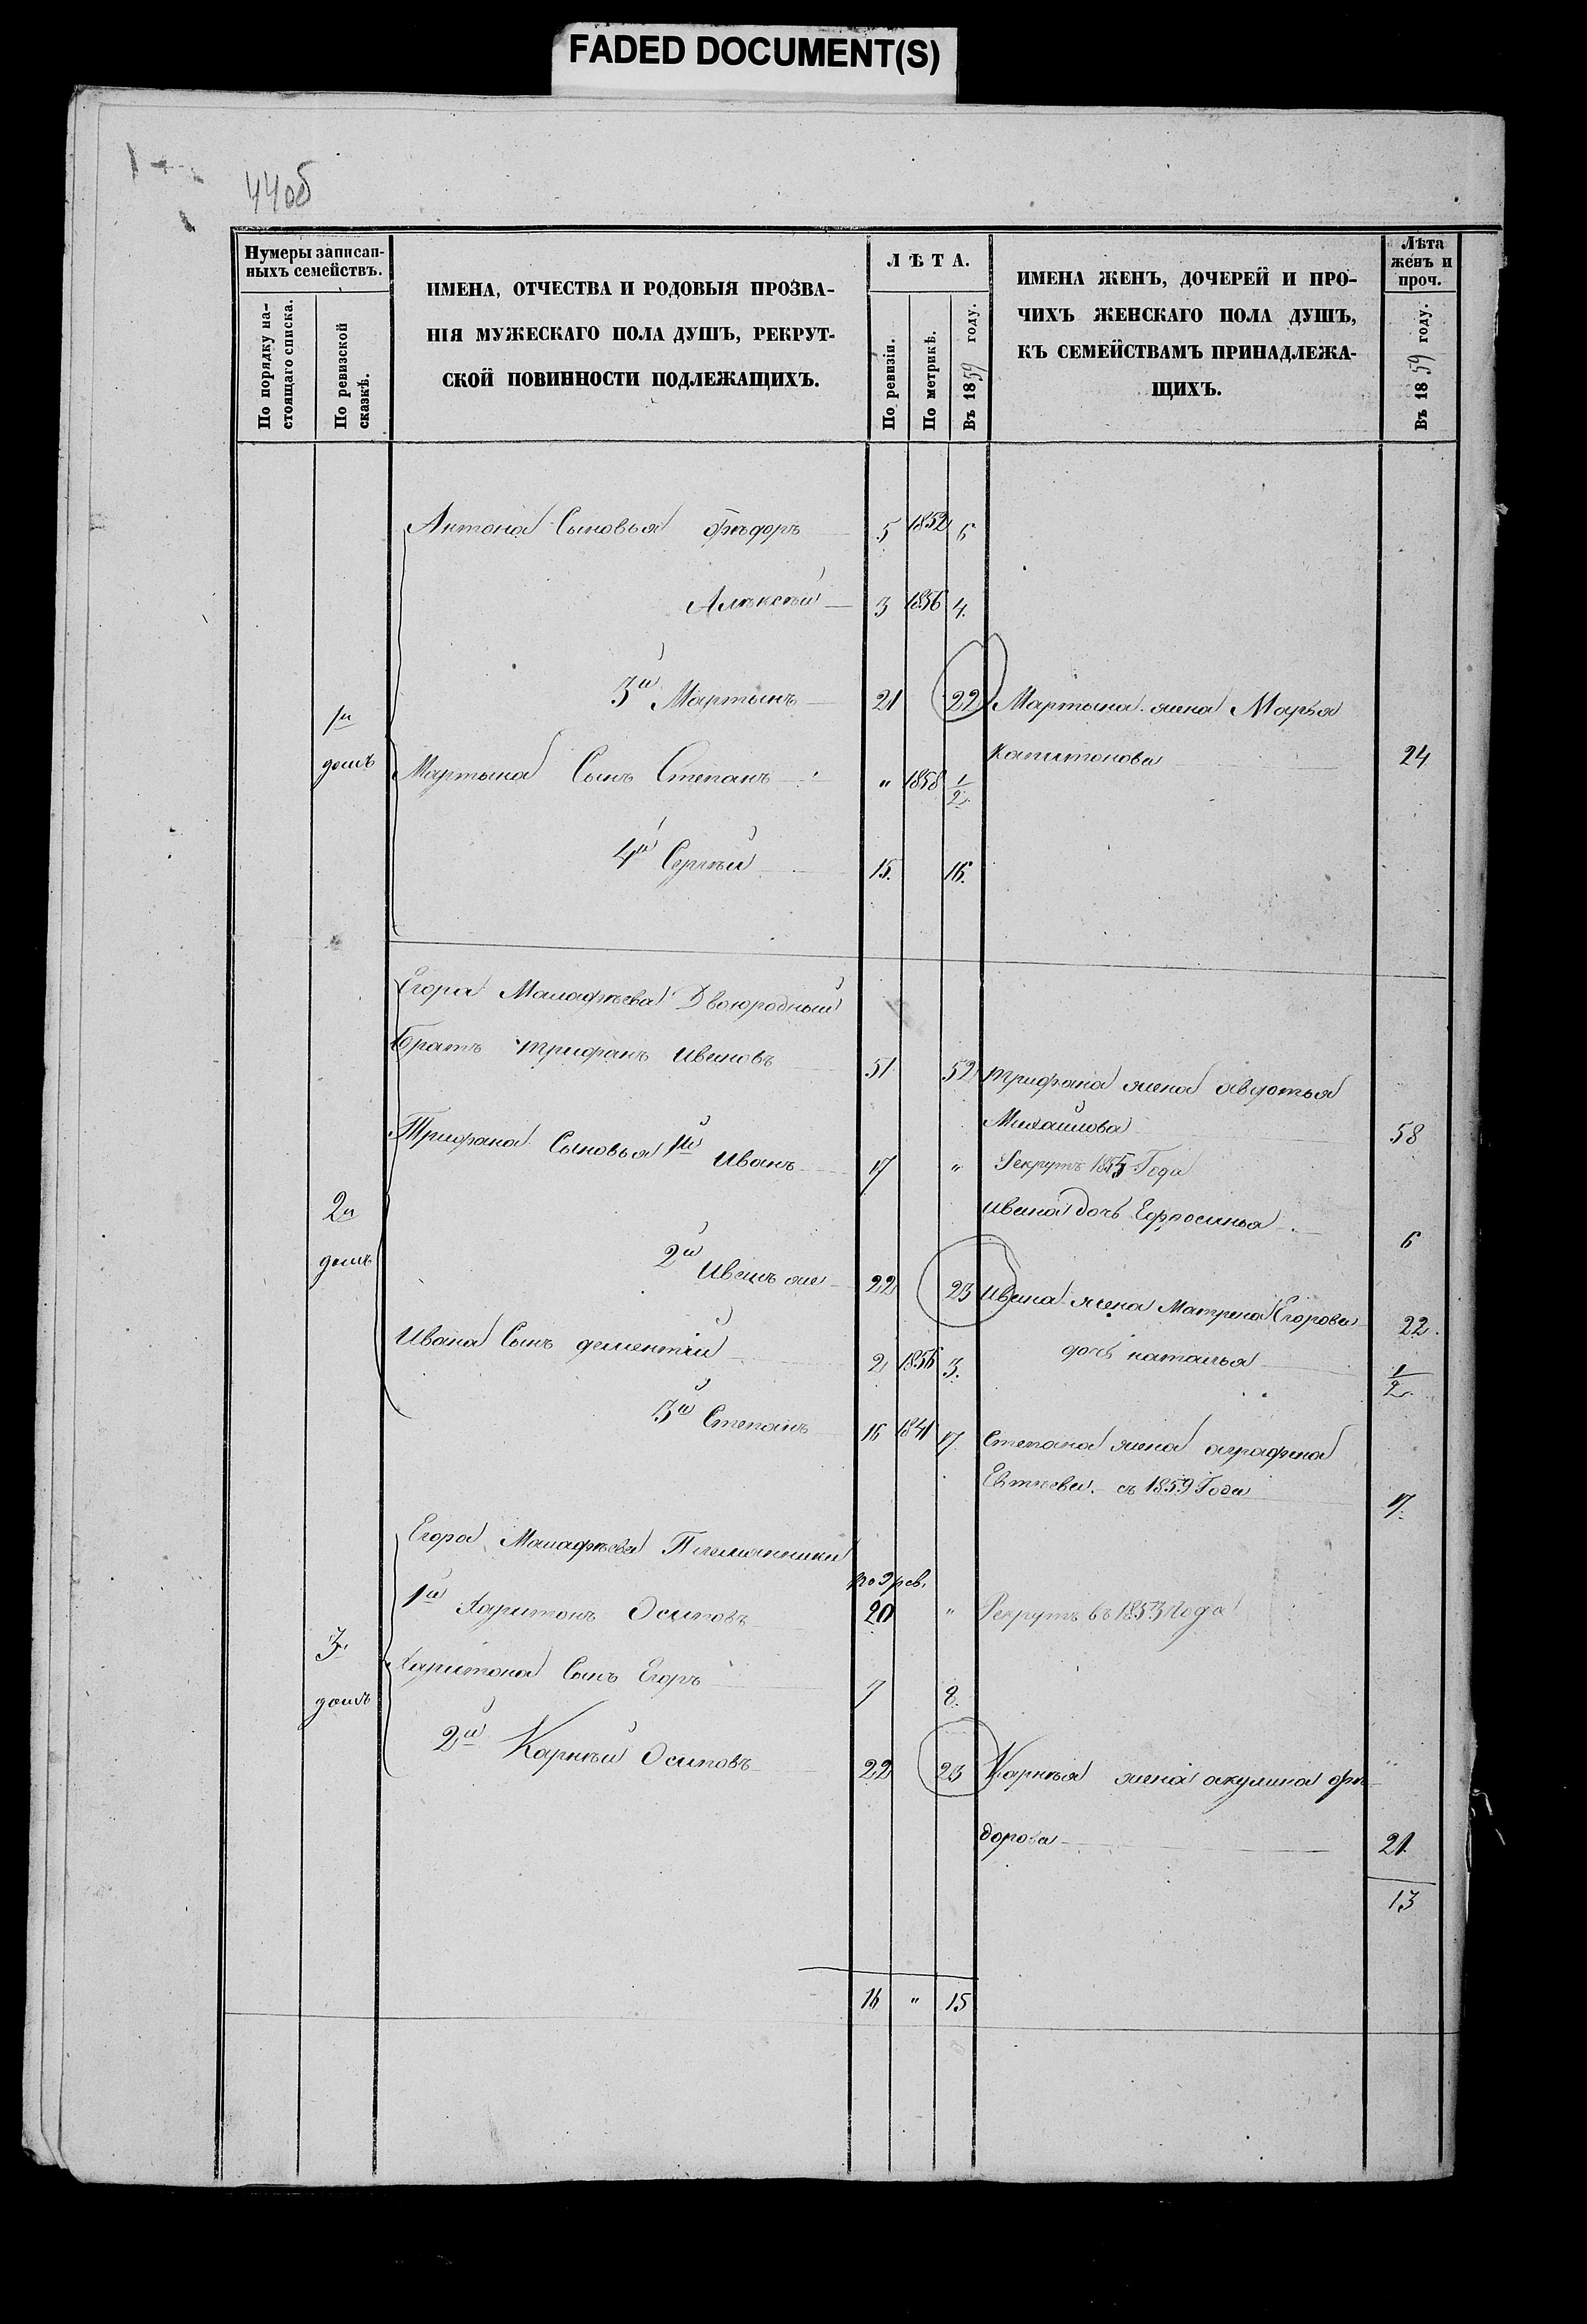 FADED DOCUMENT(S)
44об
Нумеры записан-
ныхъ семействъ.
По порядку на-
стоящаго списка.
По ревизской
сказкѣ.
ИМЕНА, ОТЧЕСТВА И РОДОВЫЯ ПРОЗВА-
НІЯ МУЖЕСКАГО ПОЛА ДУШЪ, РЕКРУТ-
СКОЙ ПОВИННОСТИ ПОДЛЕЖАЩИХЪ.
ЛѢТА.
По ревизіи.
По метрикѣ.
Въ 1859 году.
ИМЕНА ЖЕНЪ, ДОЧЕРЕЙ И ПРО-
ЧИХЪ ЖЕНСКАГО ПОЛА ДУШЪ,
КЪ СЕМЕЙСТВАМЪ ПРИНАДЛЕЖА-
ЩИХЪ.
Лѣта
женъ и
проч.
Въ 1859 году.
Антона Сыновья Фѣдоръ 5 1852 6
Алѣксѣй 3 1856 4.
3й Мартынъ 21 22 Мартына жена Марья
1й
домъ
Капитонова 24
Мартына Сынъ Степанъ " 1858 1/2
4й Сергѣй 15. 16.
Егора Малафѣева Двоюродный
Братъ трифанъ Ивановъ 51 52 трифана жена авдотья
Михайлова 58
Трифана Сыновья 1й Иванъ 17 " Рекрутъ 1855 Года
Ивана дочь Ефросинья 6
2й
домъ
2й Иванъ же 22 23 Ивана жена Матрена Егорова 22.
Ивана Сынъ дементій 2 1856 3. дочь наталья 1/2
3й Степанъ 16 1841 17 Степана жена аграфена
Евтѣева съ 1859 Года 17.
Егора Малафѣева Племянники
по 9 рев.
1й Харитонъ Осиповъ 20 " Рекрутъ въ 1853 года
3й
домъ
Харитона Сынъ Егоръ 7 8.
2й Карнѣй Осиповъ 22 23 Карнѣя жена акулина фѣ-
дорова 21.
13
16 " 15